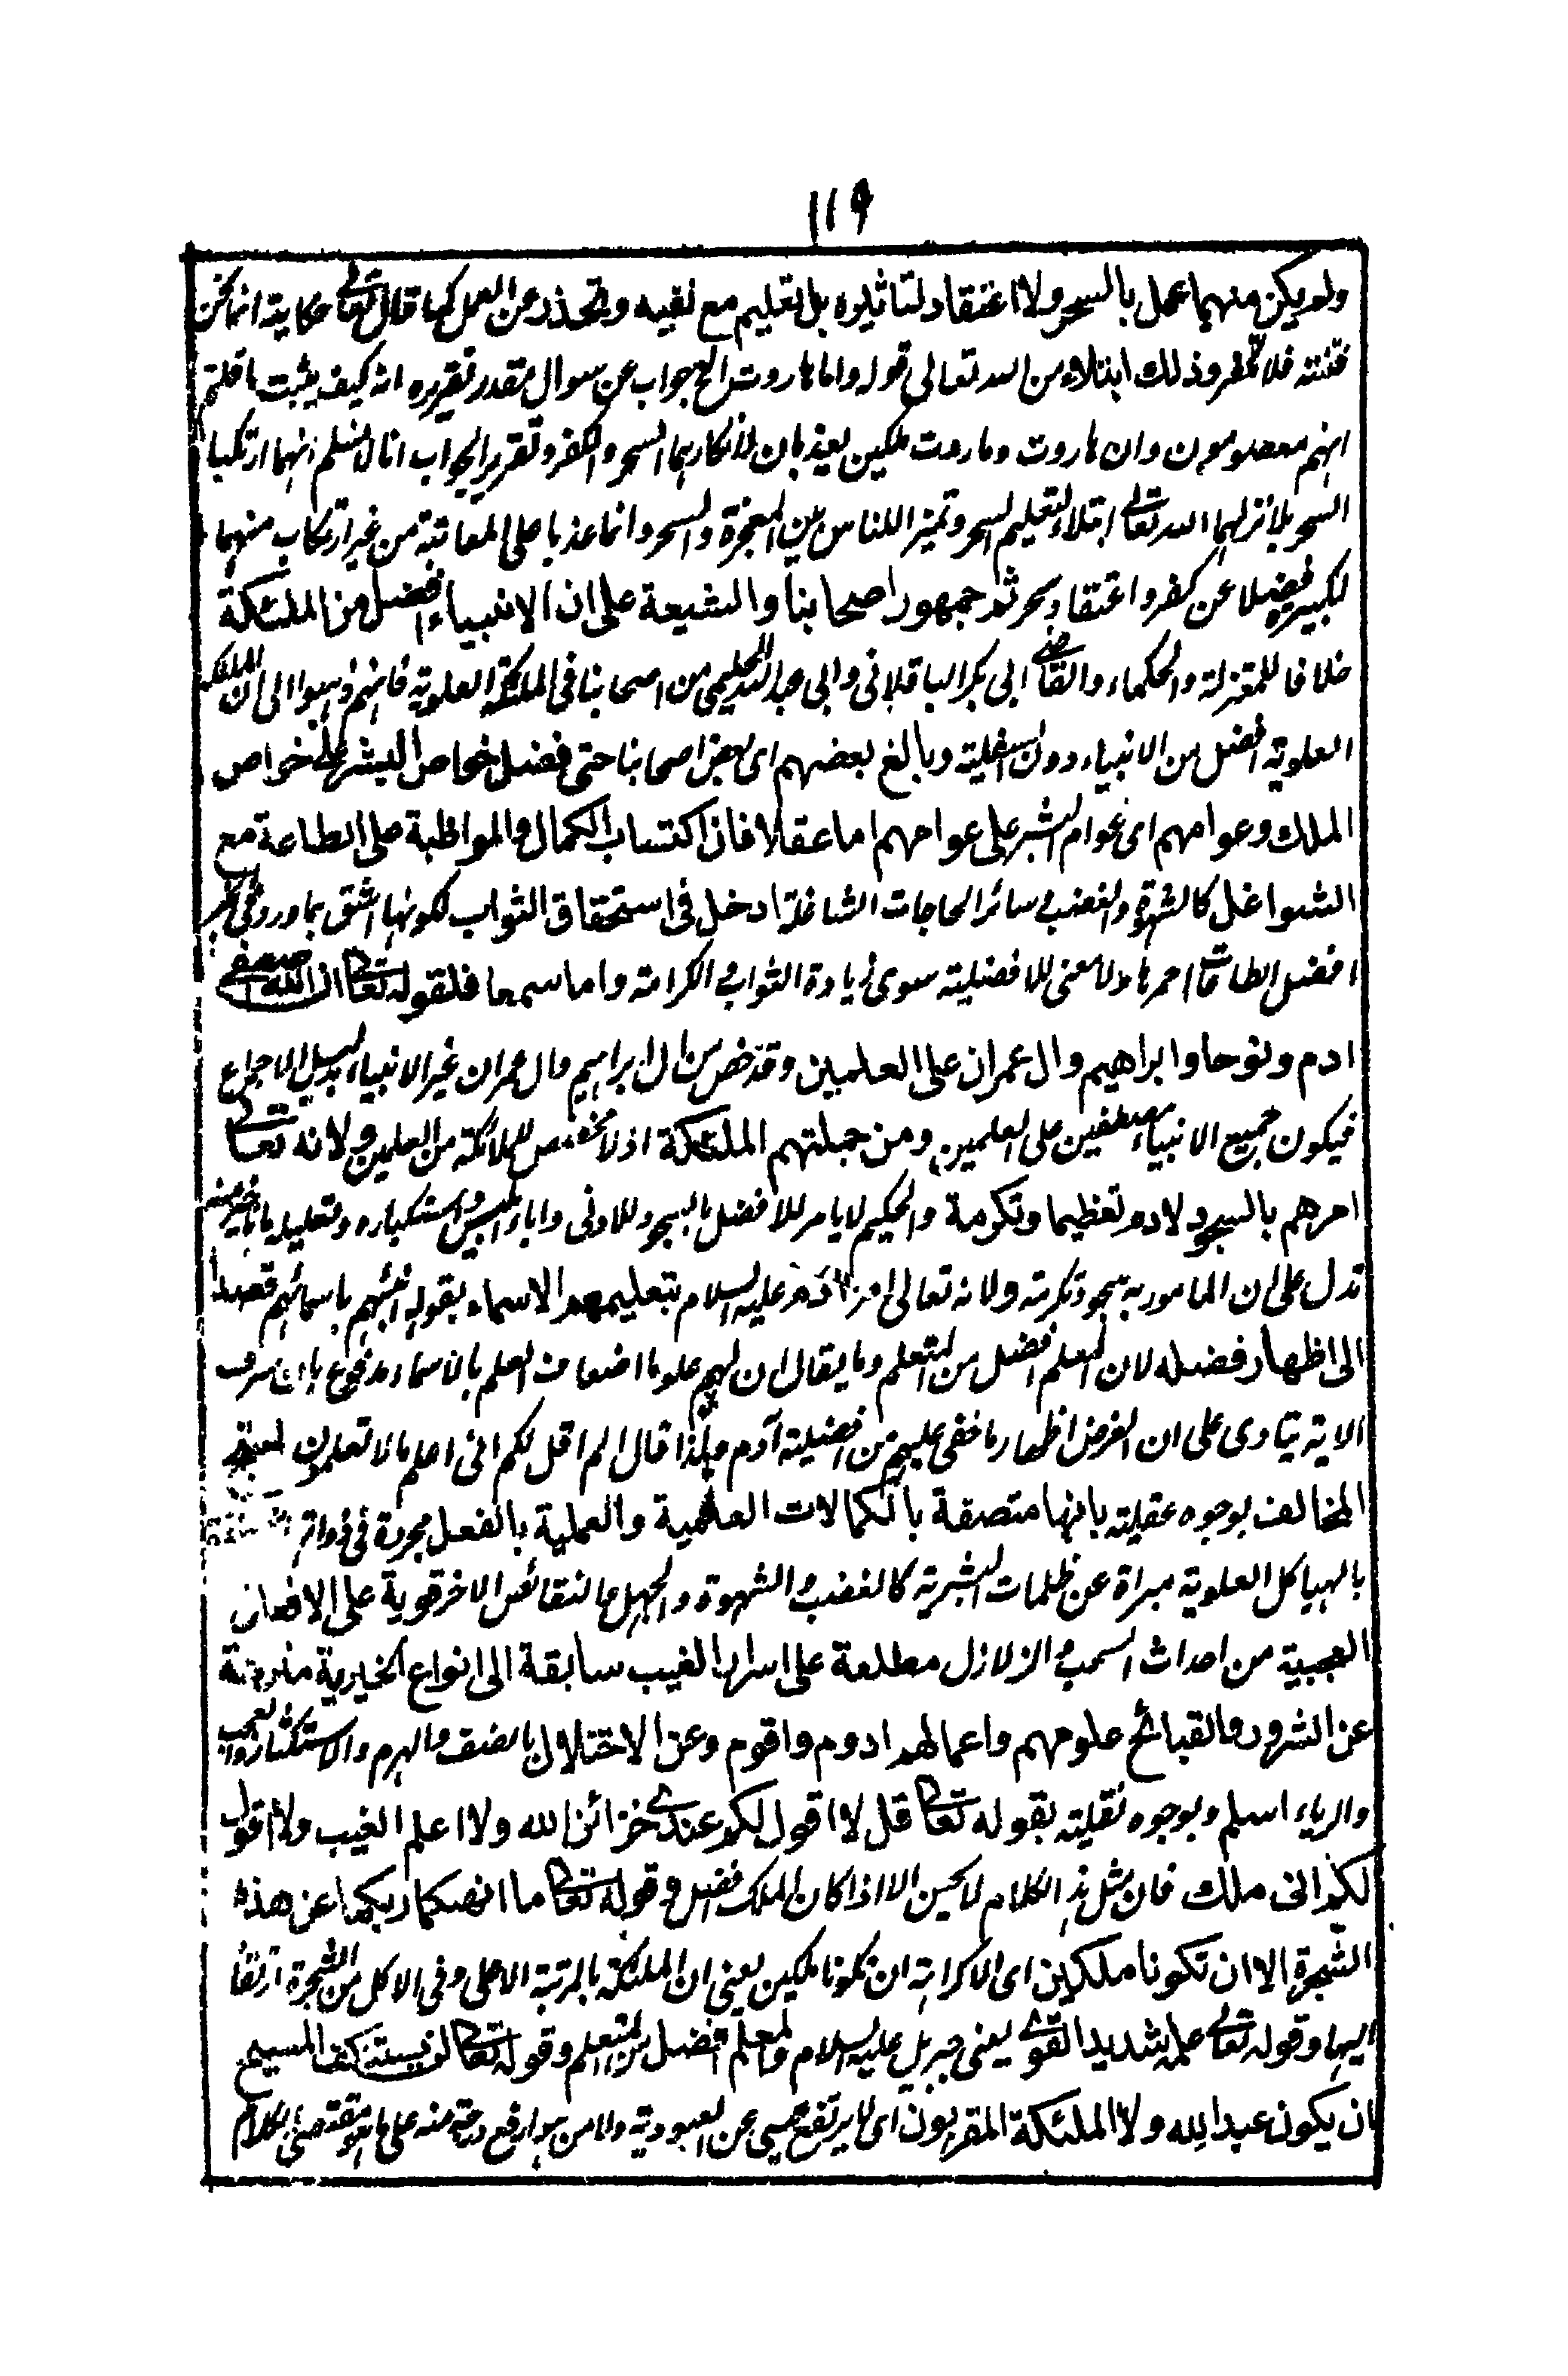 ١١٩
ولم يكن منهما عمل بالسحر ولا اعتقاد لتاثيره بل تعليم مع نفيه وتحذر عن العمل كما قال تعالى حكاية انما نحن
فتنة فلا تكفر وذلك ابتلاء من الله تعالى قوله واما هاروت الخ جواب عن سوال مقدر تقريره انه كيف يثبت ما قلتم
انهم معصومون وان هاروت وماروت ملكين يعذبان لانكارهما السحر والكفر وتقرير الجواب انا لا نسلم انهما ارتكبا
السحر بل انزلهما الله تعالى ابتلاء لتعليم السحر وتميزا للناس بين المعجزة والسحر وانما عذبا على المعاتبة من غير ارتكاب منهما
لكبيرة فضلا عن كفر واعتقاد سحر ثم جمهور اصحابنا والشيعة على ان الانبياء افضل من الملئكة
خلافا للمعتزلة والحكماء والقاضي ابى بكر الباقلانى وابى عبد الله الحليمى من اصحابنا فى الملئكة العلوية فانهم ذهبوا الى ان الملئكة
العلوية افضل من الانبياء دون السفلية وبالغ بعضهم اى بعض اصحابنا حتى فضل خواص البشر على خواص
الملك وعوامهم اى عوام البشر على عوامهم اما عقلا فان اكتساب الكمال والمواظبة على الطاعة مع
الشواغل كالشهوة والغضب وسائر الحاجات الشاغلة ادخل فى استحقاق الثواب لكونها اشق بما ورد فى الخبر
افضل الطاعات احمزها ولا معنى للافضلية سوى زيادة الثواب والكرامة واما سمعا فلقوله تعالى ان الله اصطفى
ادم ونوحا وابراهيم وال عمران على العلمين وقد خص من ال ابراهيم وال عمران غير الانبياء بدليل الاجماع
فيكون جميع الانبياء مصطفين على العلمين ومن جملتهم الملئكة اذ لا مخصص للملائكة من العلمين ولانه تعالى
امرهم بالسجود لادم تعظيما وتكرمة والحكيم لا يامر للافضل بالسجود للادنى واباء ابليس واستكباره وتعليله بانا خير منه
تدل على ان المامور به سجود تكرمة ولانه تعالى امر ادم عليه السلام بتعليمهم الاسماء بقوله انبئهم باسمائهم قصدا
الى اظهار فضله لان المعلم افضل من المتعلم وما يقال ان لهم علوما اضعاف العلم بالاسماء مدفوع بان سوق
الاية ينادى على ان الغرض اظهار ما خفى عليهم من افضلية آدم ولذا قال الم اقل لكم انى اعلم مالا تعلمون
المخالف بوجوه عقلية بانها متصفة بالكمالات العلمية والعملية بالفعل مجردة فى ذواتها
بالهياكل العلوية مبراة عن ظلمات البشرية كالغضب والشهوة والجهل والنقائص الاخر قوية على الافعال
العجيبة من احداث السحب والزلازل مطلعة على اسرار الغيب سابقة الى انواع الخيرية منزهة
عن الشرور والقبائح علومهم واعمالهم ادوم واقوم وعن الاختلال بالضعف والهرم والاستكثار والعجب
والرياء اسلم وبوجوه نقلية بقوله تعالى قل لا اقول لكم عندى خزائن الله ولا اعلم الغيب ولا اقول
لكم انى ملك فان مثل هذا الكلام لا يحسن الا اذا كان الملك افضل وقوله تعالى ما انهكما ربكما عن هذه
الشجرة الا ان تكونا ملكين اى الا كراهة ان تكونا ملكين يعنى ان الملئكة بالمرتبة الاعلى وفى الاكل من الشجرة ارتقاء
اليها وقوله تعالى علمه شديد القوى يعنى جبريل عليه السلام والمعلم افضل من المتعلم وقوله تعالى لن يستنكف المسيح
ان يكون عبدا لله ولا الملئكة المقربون اى لا يرتفع عيسى عن العبودية ولا من هو ارفع درجة منه على ما هو مقتضى الكلام